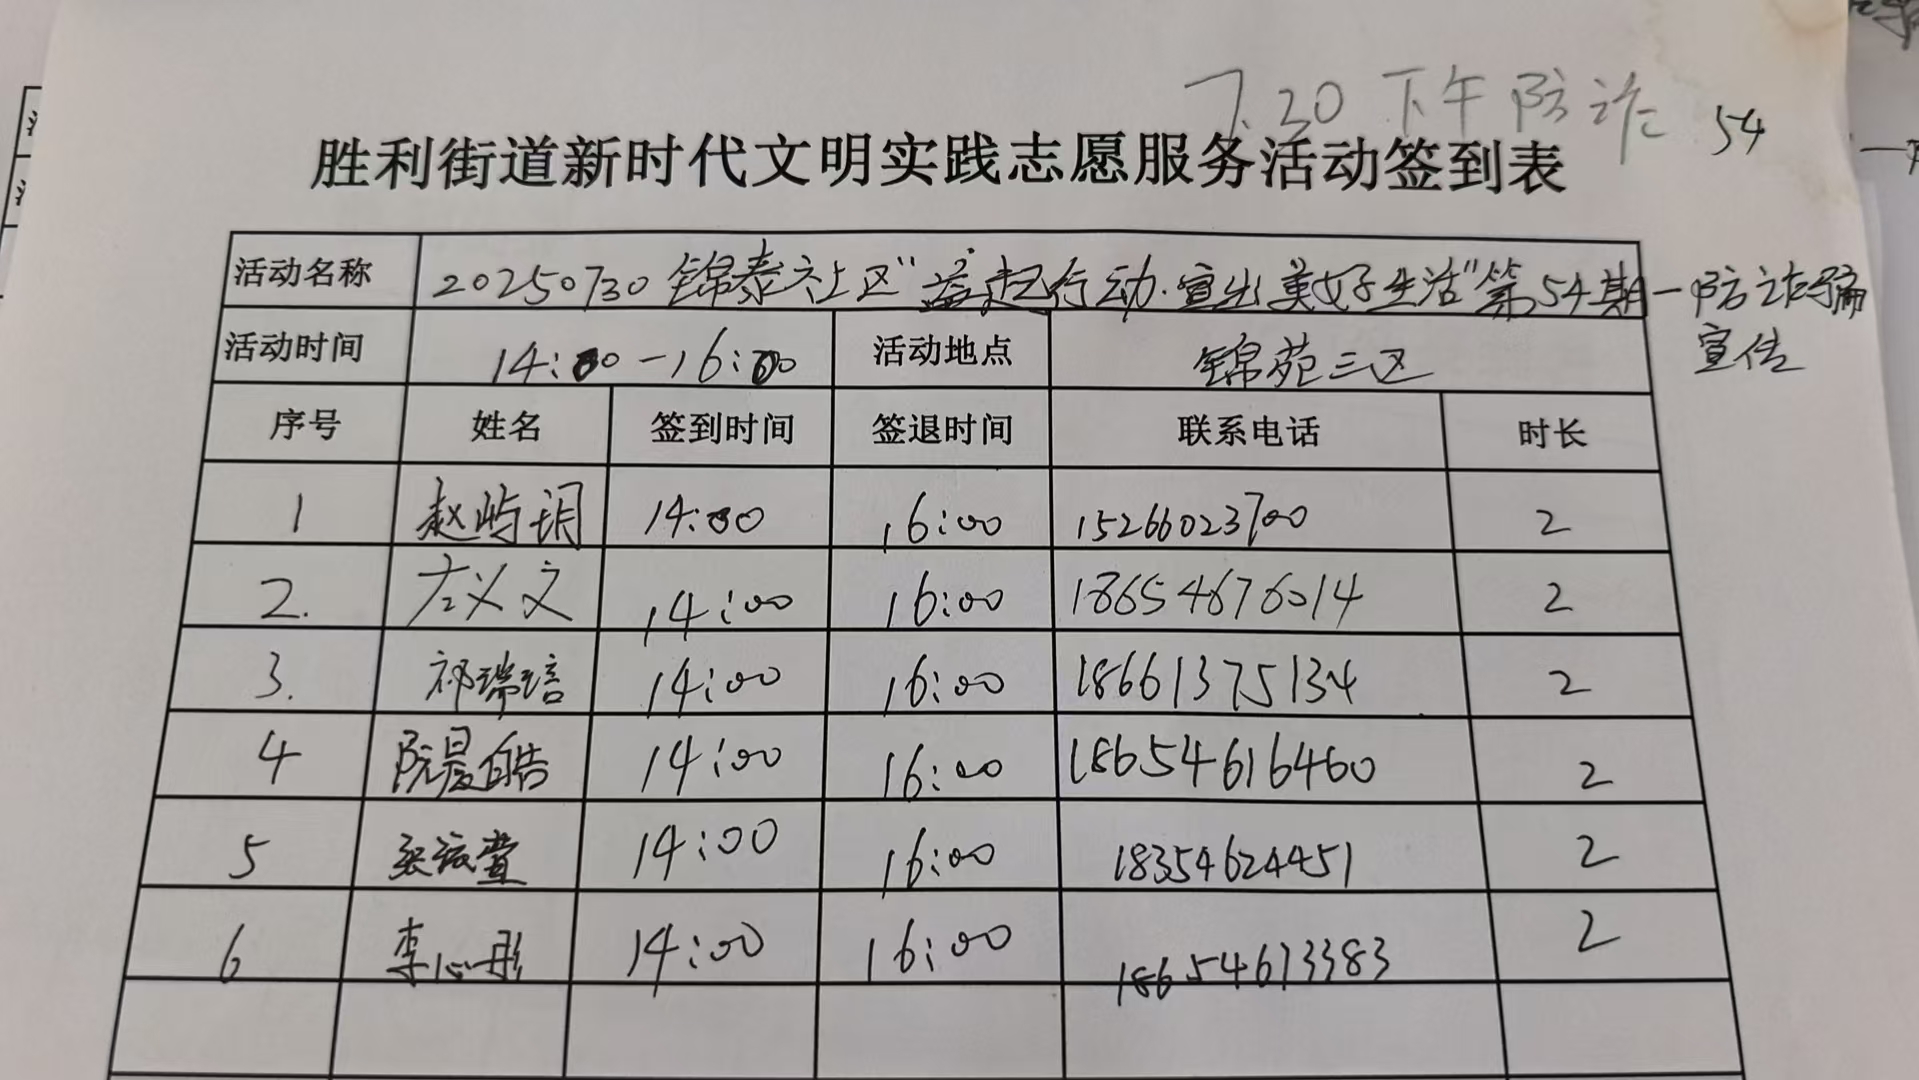 7.30 下午 防诈 54
胜利街道新时代文明实践志愿服务活动签到表
活动名称 20250730 锦泰社区“益起行动·宣出美好生活”第54期—防诈骗
宣传
活动时间 14:00-16:00 活动地点 锦苑三区
序号 姓名 签到时间 签退时间 联系电话 时长
1 赵屿玥 14:00 16:00 15266023700 2
2. 左义文 14:00 16:00 18654676014 2
3. 祁瑞培 14:00 16:00 18661375134 2
4 阮晨皓 14:00 16:00 18654616460 2
5 14:00 16:00 18354624451 2
6 李心彤 14:00 16:00 18654613383 2